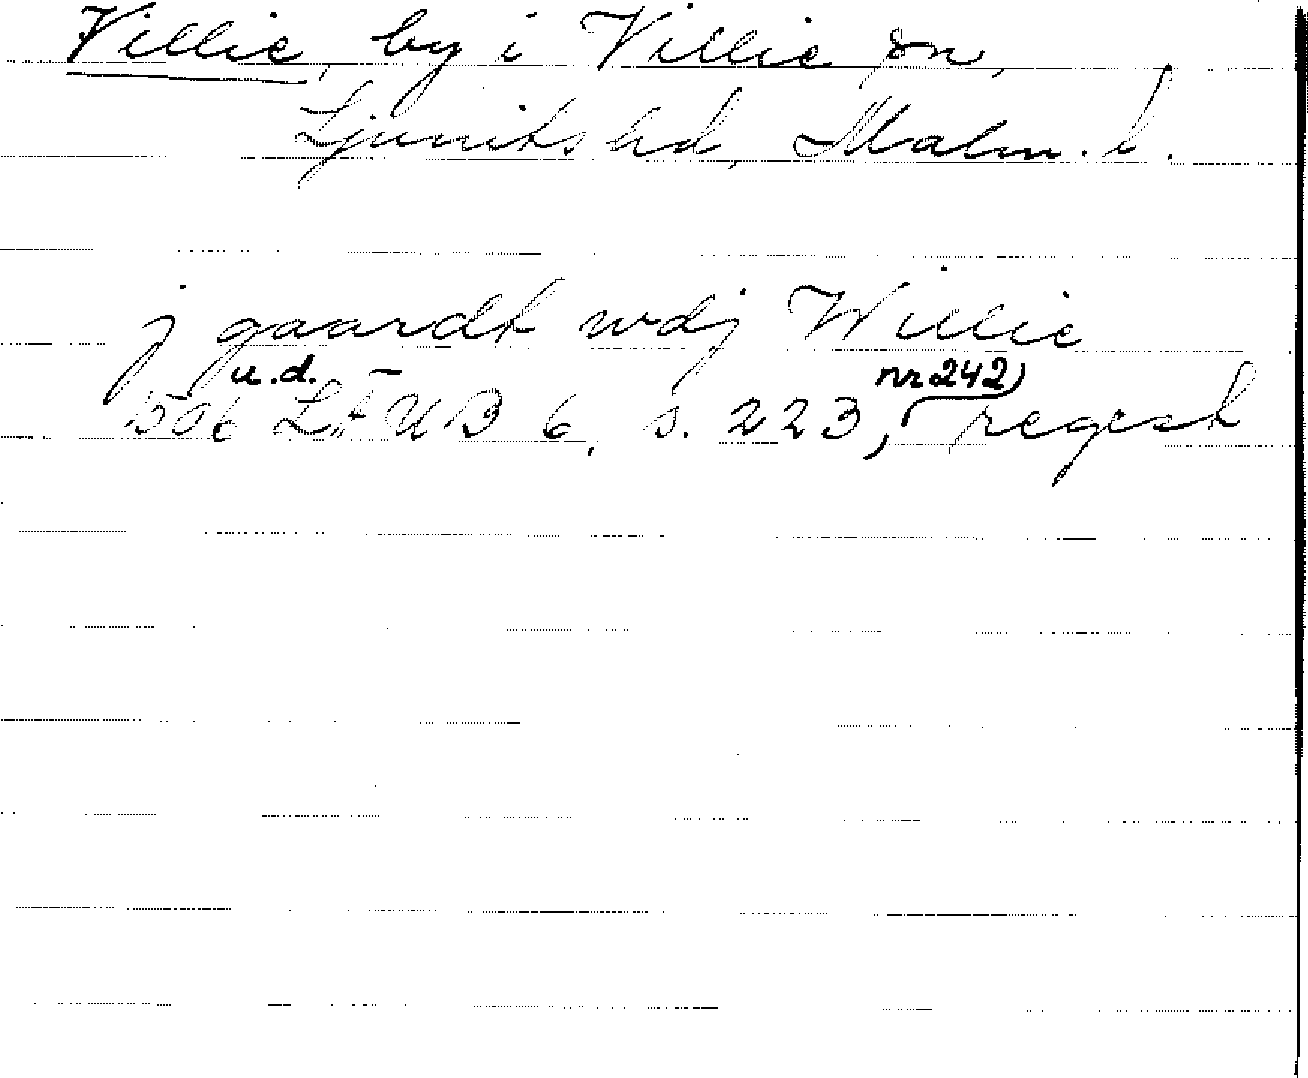 Villie, by i Villie sn,
Ljunits hd, Malm. l.
j gaardt wdj Willie
u.d. nr 242)
1506 LÄUB 6, s. 223, regest